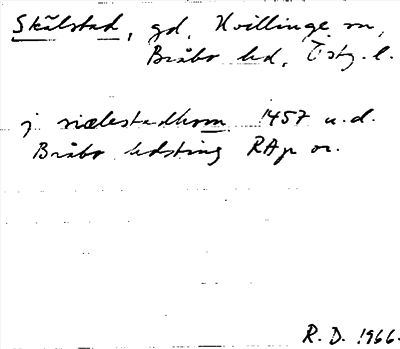 Skälstad, gd, Kvillinge sn,
Bråbo hd, Östg. l.
j siælestadhom 1457 u.d.
Bråbo hdsting RAp or.
R. D. 1966.